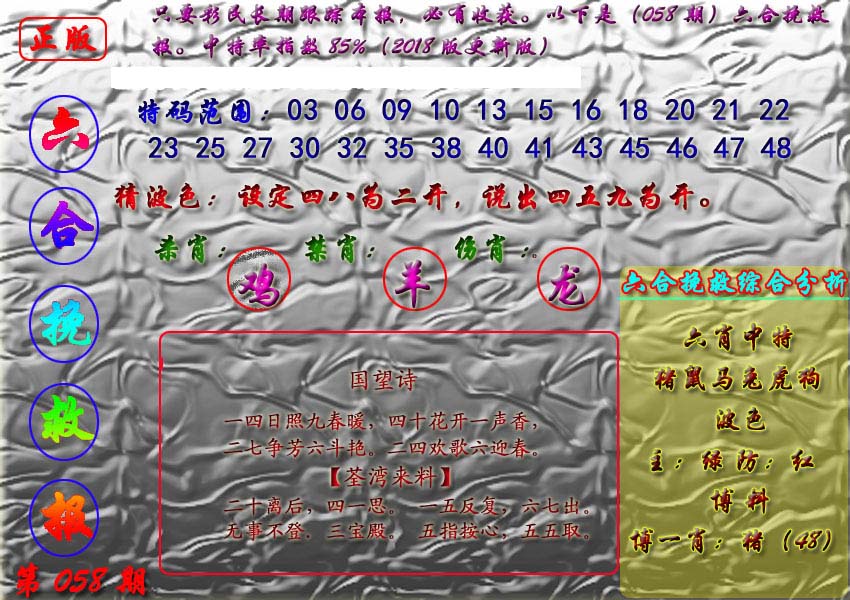 正版
只要彩民长期跟踪本报，必有收获。以下是（058期）六合挽救
报。中特率指数85%（2018版更新版）
六合挽救报
第058期
特码范围：03 06 09 10 13 15 16 18 20 21 22
23 25 27 30 32 35 38 40 41 43 45 46 47 48
猜波色：设定四八为二开，说出四五九为开。
杀肖：鸡 禁肖：羊 伤肖：龙
国望诗
一四日照九春暖，四十花开一声香，
二七争芳六斗艳。二四欢歌六迎春。
【荃湾来料】
二十离后，四一思。 一五反复，六七出。
无事不登．三宝殿。 五指按心，五五取。
六合挽救综合分析
六肖中特
猪鼠马兔虎狗
波色
主：绿防：红
博料
博一肖：猪（48）